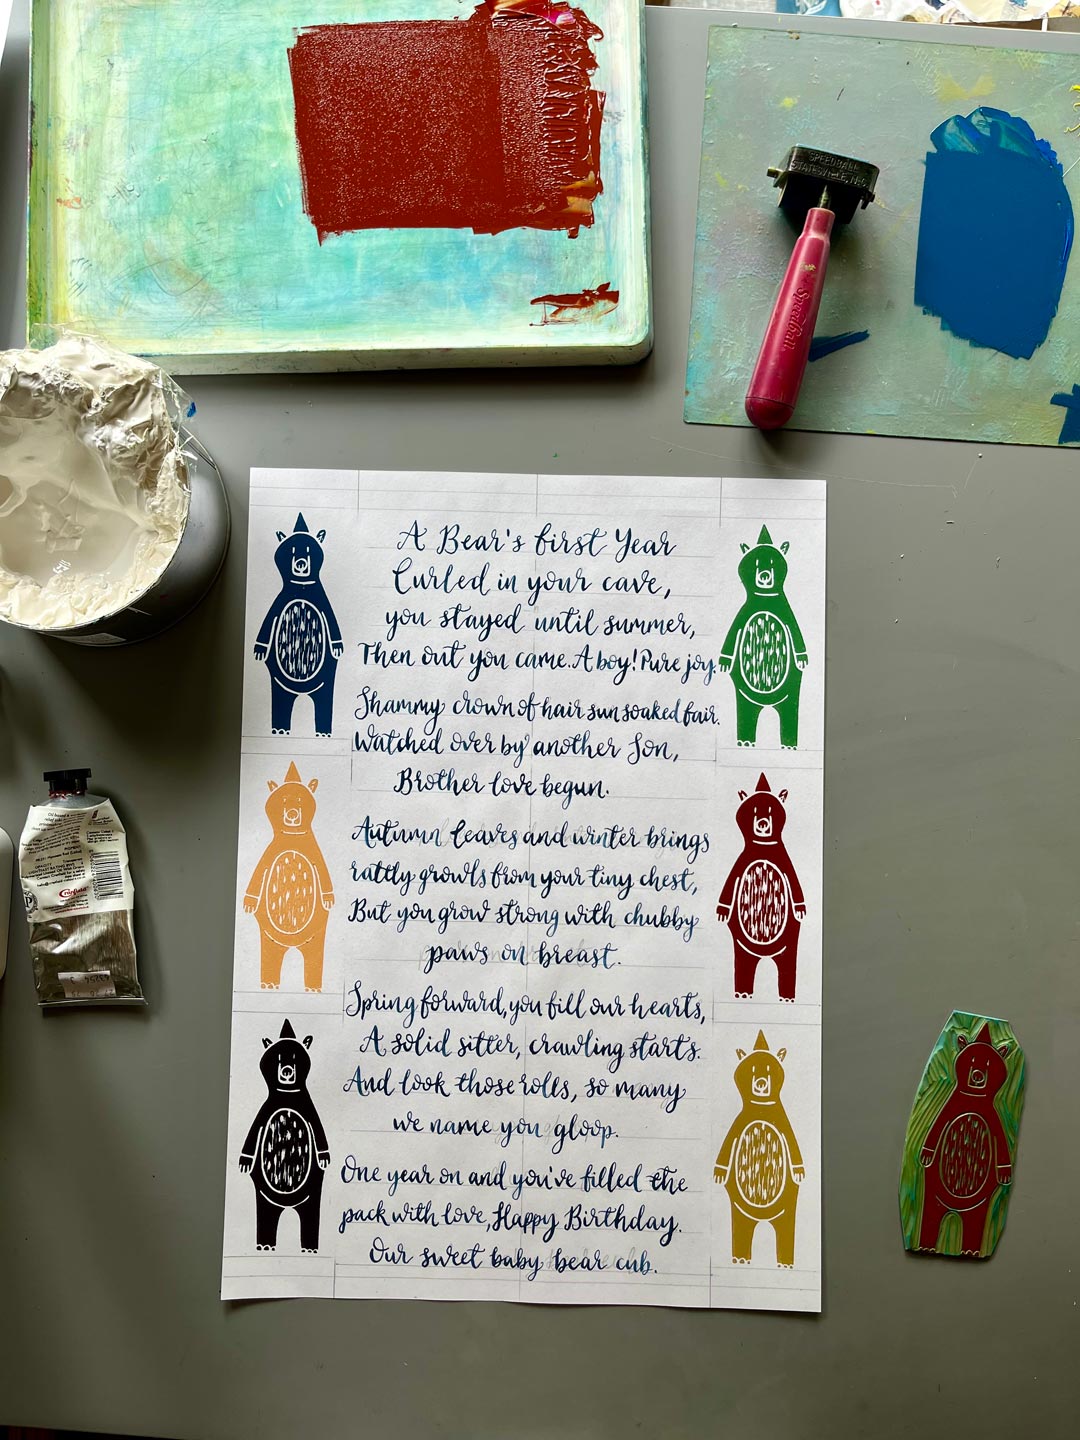 SPEEDBALL
STATESVILLE, N.C.
Speedball
A Bear's first Year
Curled in your cave,
you stayed until summer,
Then out you came. A boy! Pure joy.
Shammy crown of hair sun soaked fair.
Watched over by another Son,
Brother love begun.
Autumn leaves and winter brings
rattly growls from your tiny chest,
But you grow strong with chubby
paws on breast.
Spring forward, you fill our hearts,
A solid sitter, crawling starts.
And look those rolls, so many
we name you gloop.
One year on and you've filled the
pack with love, Happy Birthday.
Our sweet baby bear cub.